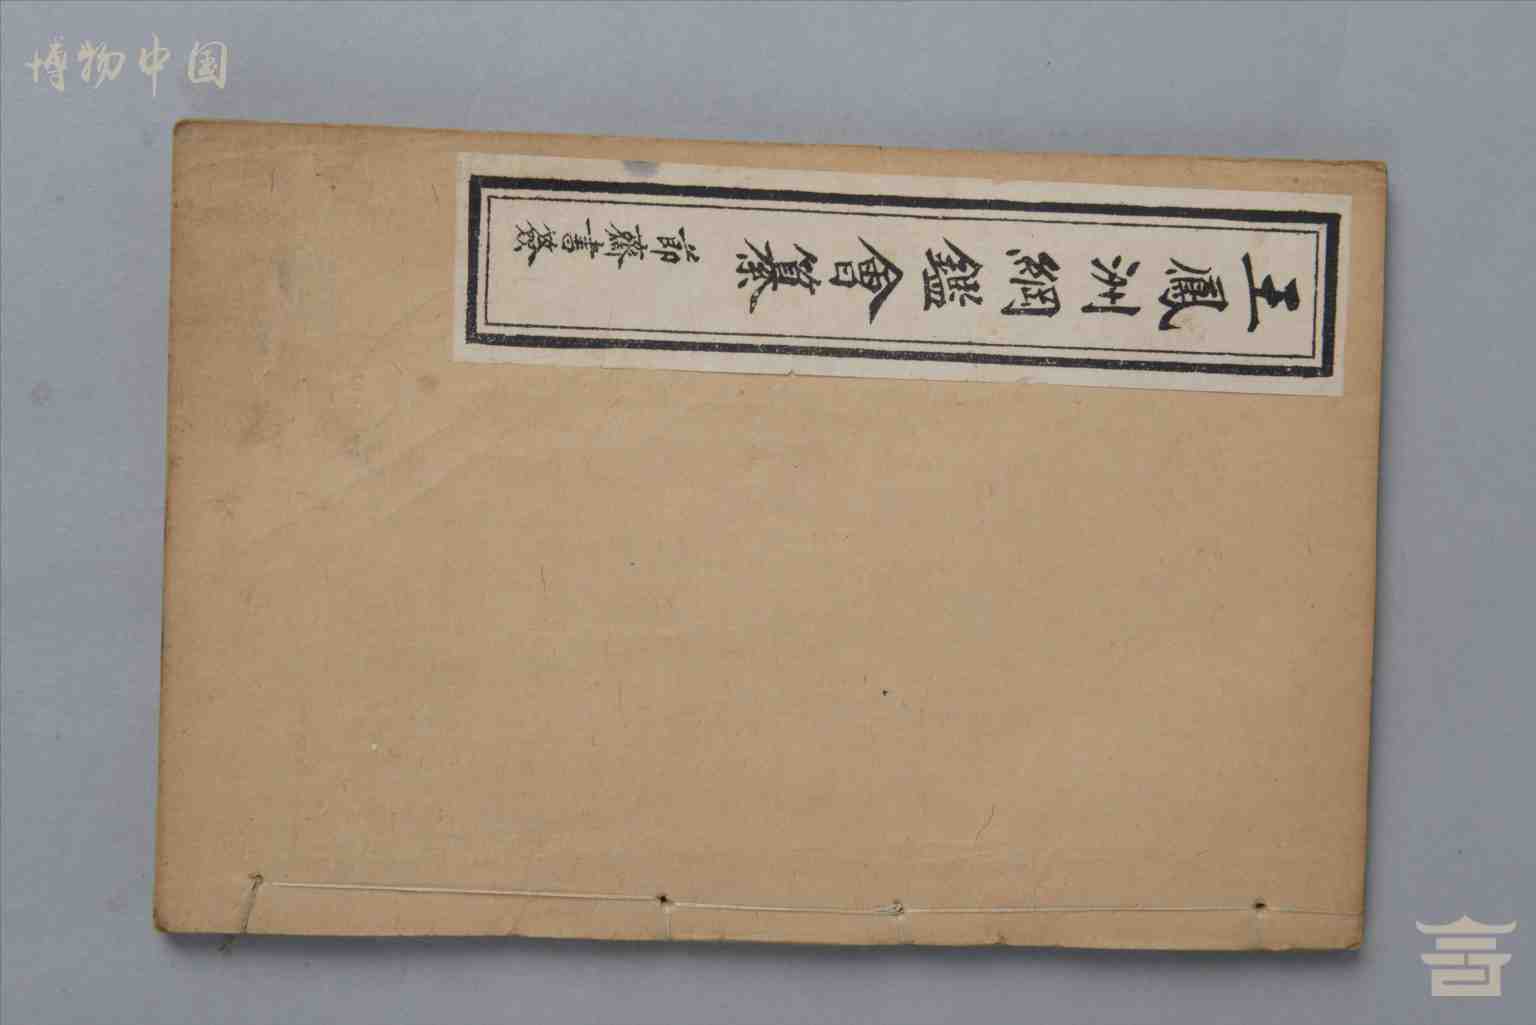 博物中国
王鳳洲綱鑑會纂
節齋書簽